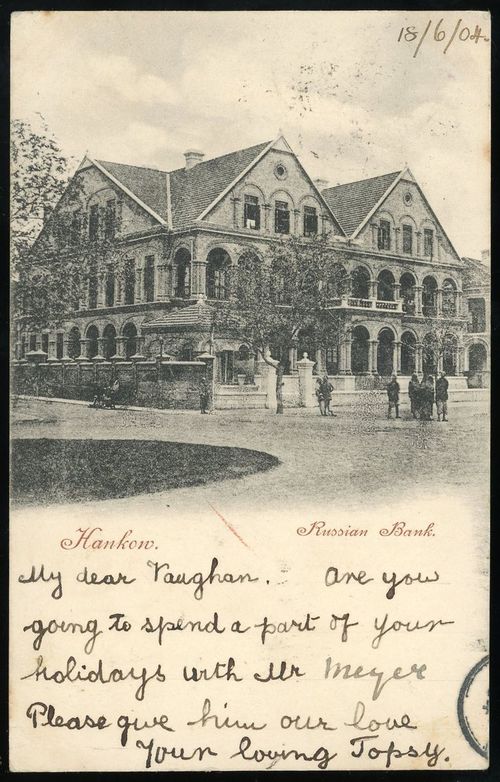 18/6/04.
Hankow.
Russian Bank.
My dear Vaughan. Are you
going to spend a part of your
holidays with Mr Meyer
Please give him our love
Your loving Topsy.